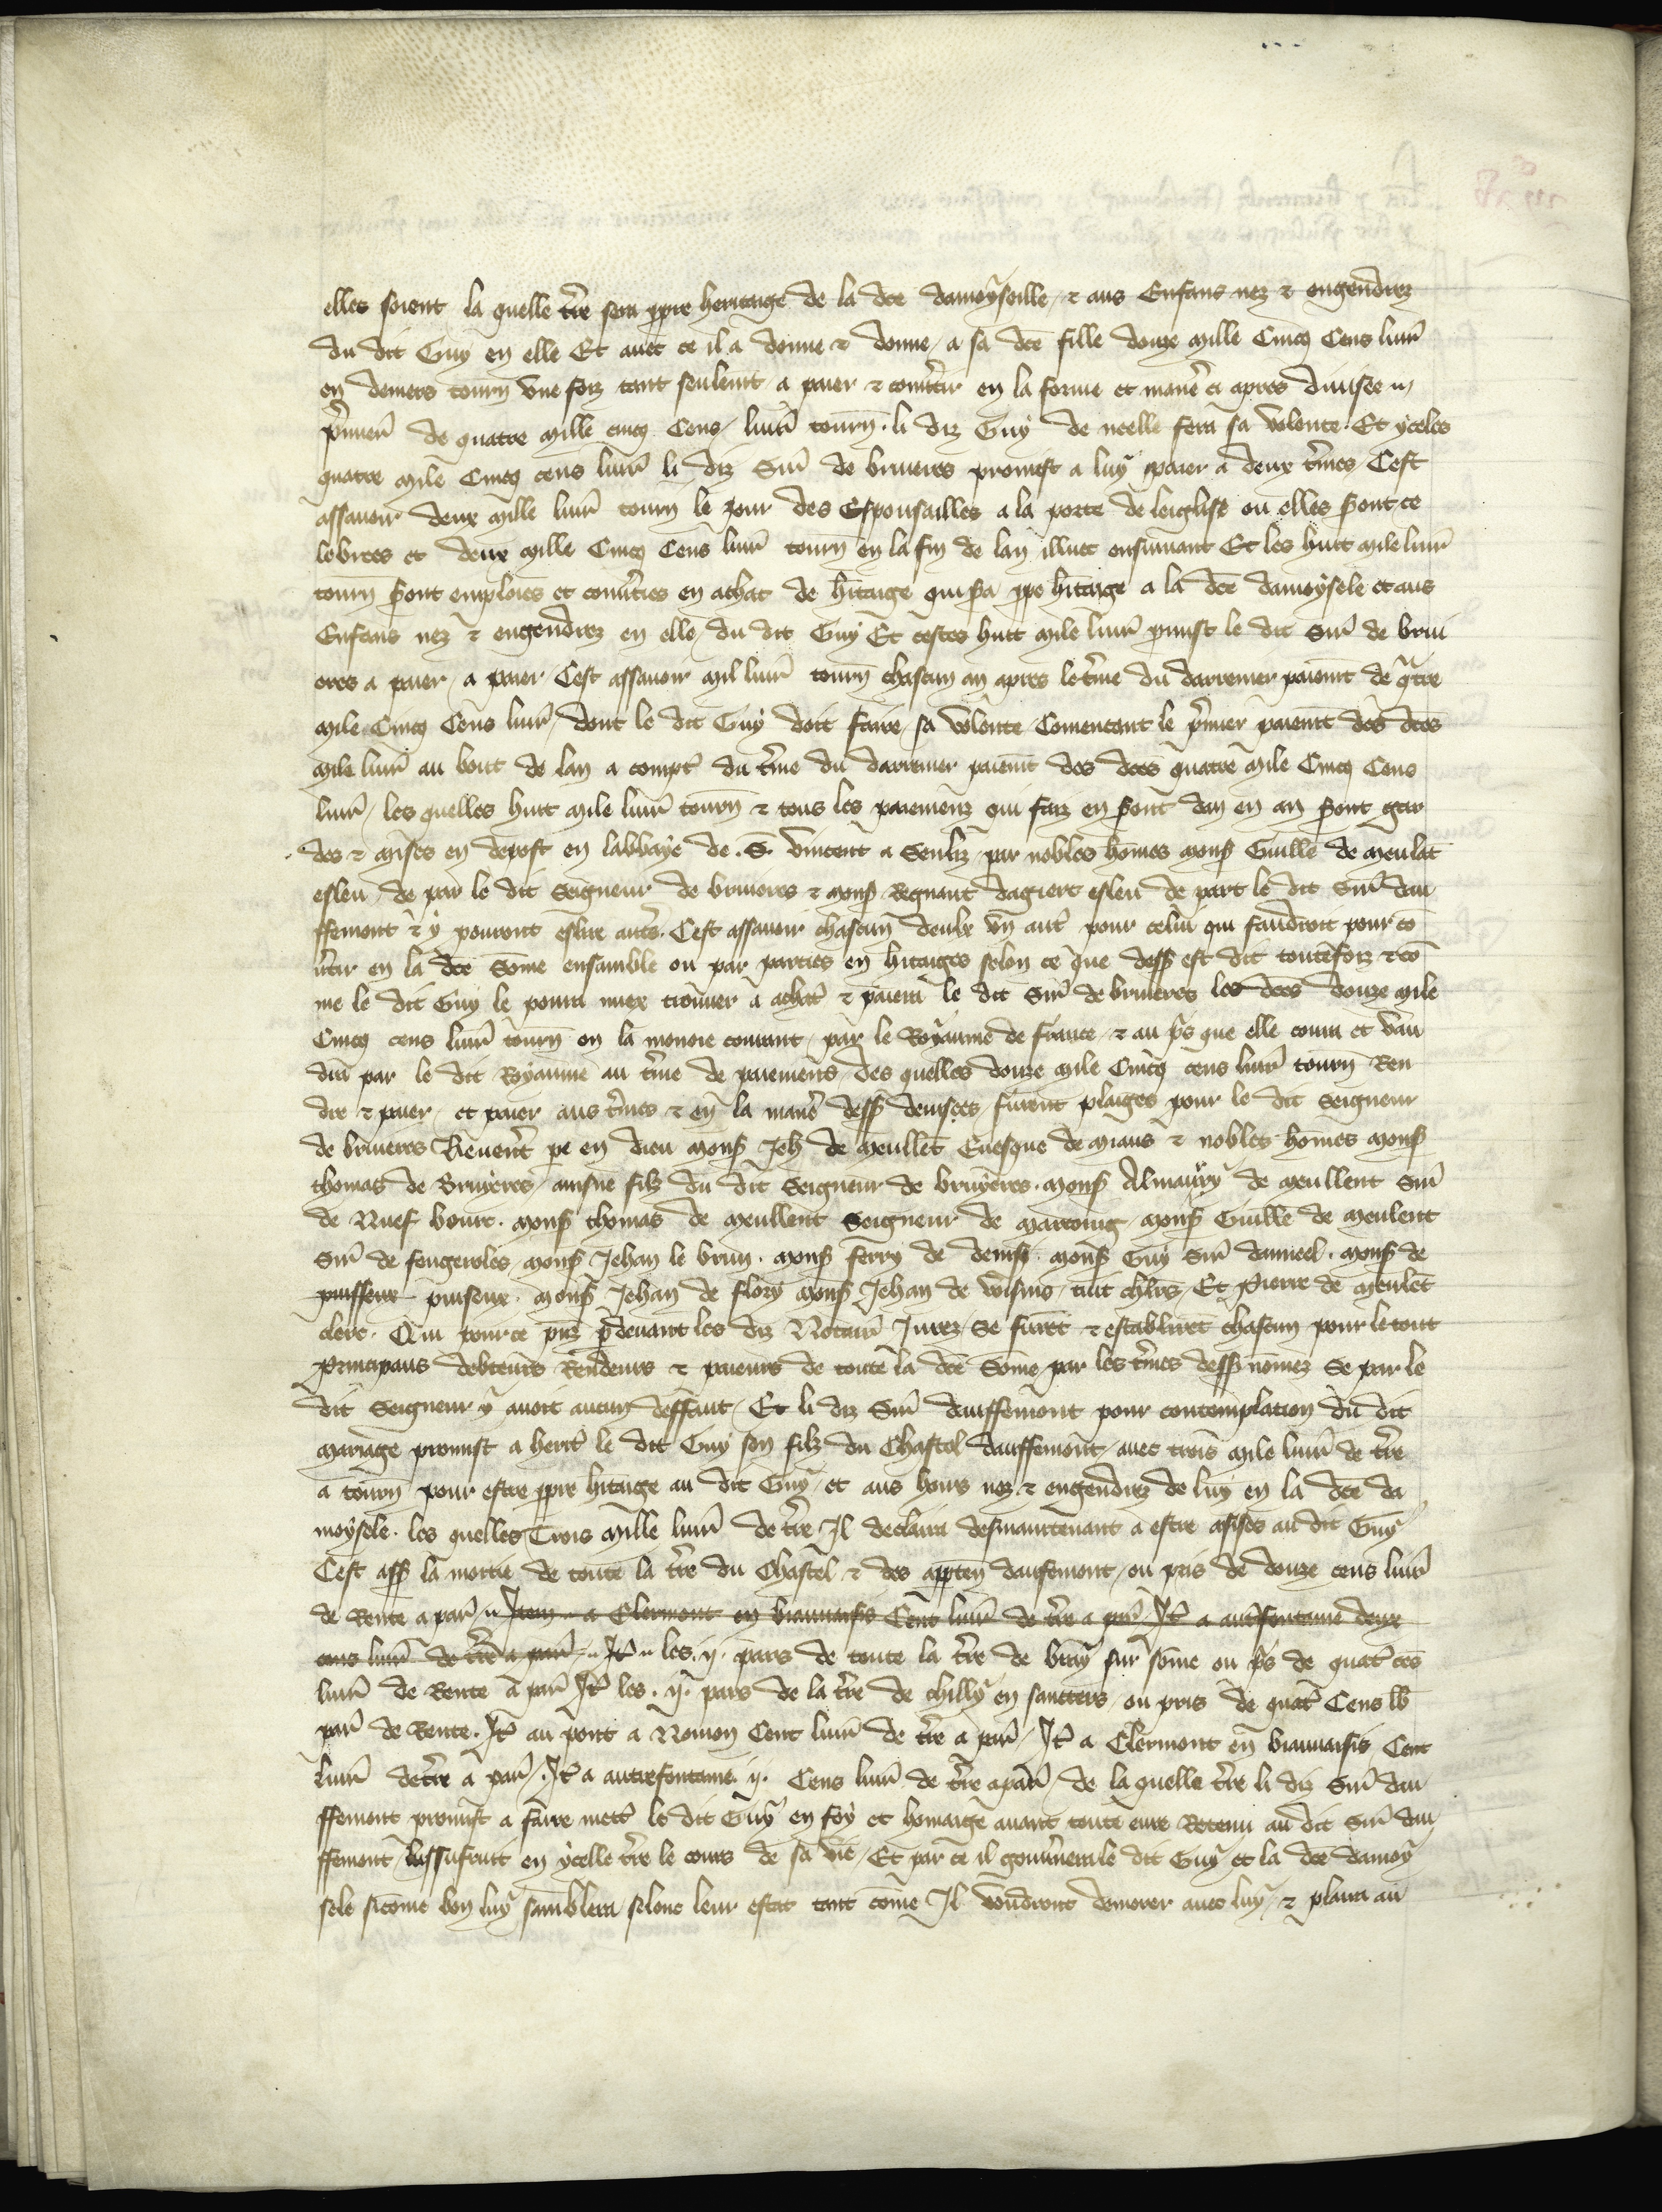 elles soient la quelle tr̃e sera ppre heritaige de la dce damoyselle / ⁊ aus Enfans nez ⁊ engendrez
du dit Guy en elle Et auec ce il a donne ⁊ donne / a sa dcẽ fille douze mille Cinq Cens liur̃
en deniers tourñ vne foiz tant seulemt a paier ⁊ conu̇tir en la forme et maner̃ ci apres diuisee
p̃mier̃ de quatre mille cinq Cens / liur̃ tourñ . li diz Guy de neelle fera sa volente . Et yceles
quatre mile Cinq cens liur̃ li diz Sir̃ de bruieres promest a luy paier a deux t̃mes / Cest
assauoir deux mille liur̃ tourñ le jour des Espousailles a la porte de leiglise ou elles s̃ont ce
lebrees et deux mille Cinq Cens liur̃ tourñ en la fin de lan illuec ensuiuant Et les huit mile liur̃
tourñ s̃ont emploiees et conu̇ties en achat de h̃itaige qui s̃a ppe h̃itaige a la dcẽ damoysele et aus
Enfans nez ⁊ engendrez en elle / du dit Guy Et cestes huit mile liur̃ pmist le dit Sir̃ de brui
eres a paier / a paier / Cest assauoir mil liur̃ tourñ chascun an apres le t̃me du darrenier paiemt̃ de q̃tre
mile Cinq Cens liur̃ / dont le dit Guy doit faire / sa volente / Comencant le p̃mier paiemt̃ des dces
mile liur̃ au bout de lan a compt̃ du t̃me du darrenier paiemt̃ des dces quatre mile Cinq Cens
liur̃ / les quelles huit mile liur̃ tourñ ⁊ tous les paiemenz qui faiz en s̃ont dan en an s̃ont gar
des ⁊ mises en depost en labbaye de . S . vincent a Senliz / par nobles hom̃es mons̃ Guille de meulãt
esleu / de par le dit Seigneur de bruieres ⁊ mons̃ Regnaut dagiert esleu de part le dit Sir̃ dau
ffemont ⁊ y pouront eslire aut̃s . Cest assauoir chascun deulx vn aut̃ pour celui qui faudroit pour cõ
u̇tir en la dce Som̃e ensamble ou par parties en h̃itaiges selon ce que dess̃ est dit toutefoiz ⁊ cõ
me le dit Guy le poura miex trouuer a achat̃ ⁊ paiera le dit Sir̃ de bruieres les dces douze mile
Cinq cens liur̃ tourñ en la monoie courant / par le Royaume de france / ⁊ au p̃s que elle coura et vau
dra par le dit Royaume au t̃me de paiemens / des quelles douze mile Cinq cens liur̃ tourñ Ren
dre ⁊ paier / et paier aus t̃mes ⁊ en la maner̃ dess̃ deuisees / furent plaiges pour le dit Seigneur
de bruieres Reuerent̃ pe en dieu mons̃ Jeh de meullẽt Euesque de miaus ⁊ nobles homes mons̃
thomas de Bruyeres / ainsne filz du dit Seigneur de bruyeres . mons̃ Almaury de meullent Sir̃
de Nuef bourc . mons̃ thomas de meullent Seigneur de marroing mons̃ Guille de meulent
Sir̃ de fengeroles mons̃ Jehan le brun . mons̃ ferry de denisi . mons̃ Guy Sir̃ dameel . mons̃ de
puisseux puiseux . mons̃ Jehan de flory mons̃ Jehan de voisins / tuit chl̃rs / Et Pierre de meulẽt
clerc . Qui pour ce p̃nz p̃ deuant les diz Notair̃ Jurez / Se firẽt ⁊ establirẽt chascun pour le tout
principaus debteurs Rendeurs ⁊ paieurs de toute la dce Som̃e par les t̃mes dess̃ nom̃ez Se par le
dit Seigneur y auoit aucun deffaut / Et li diz Sir̃ dauffemont pour contemplation du dit
mariage promist a herit̃ le dit Guy son filz du Chastel dauffemont / auec trois mile liur̃ de tr̃e
a tourñ pour estre ppre h̃itaige au dit Guy / et aus hoirs nez ⁊ engendrez de luy en la dce da
moysele . les quelles Trois mille liur̃ de tr̃e Jl declaira desmaintenant a estre assises au dit Guy
Cest ass̃ la moitie de toute la tr̃e du Chastel ⁊ des apptẽn dauffemont / ou pris de douze cens liur̃
de Rente a par̃ Jtem a Clermont en biauuaisis Cent liur̃ de tr̃e a par̃ Jt̃ a autrefontaine deux
cens liur̃ de tr̃e a par̃ Jt̃ les .ij. pars de toute la tr̃e de bray sur som̃e ou p̃s de quat̃ cẽs
liur̃ de Rente a par̃ Jt̃ les .ij. pars de la tr̃e de chilly en santters / ou pris de quat̃ Cens lb̃
par̃ de Rente . Jt̃ au pont a Noion Cent liur̃ de tr̃e a par̃ / Jt̃ a Clermont en biauuaisis Cent
liur̃ de tr̃e a par̃ / Jt̃ a autrefontaine .ij. Cens liur̃ de tr̃e a par̃ / de la quelle tr̃e li diz Sir̃ dau
ffemont promist a faire mett̃ le dit Guy en foy et homaige auant toute euure Retenu au dit Sir̃ dau
ffemont lussufruit en ycelle tr̃e le cours de sa vie / Et par ce il gouu̇nera le dit Guy et la dce damoy
sele sicom̃e bon luy samblera selonc leur estat tant com̃e Jl voudront demorer auec luy / ⁊ plaira au